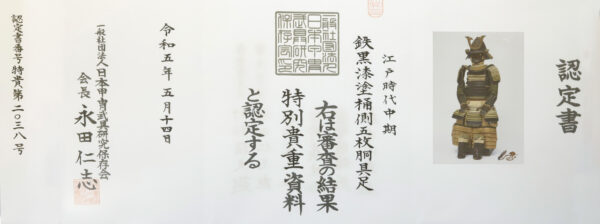 認定書
江戸時代中期
鉄黒漆塗桶側五枚胴具足
右は審査の結果
特別貴重資料
と認定する
一般社団法人
日本甲冑
武具研究
保存会印
令和五年五月十四日
一般社団法人日本甲冑武具研究保存会
会長 永田仁志
認定書番号特貴第二〇三八号